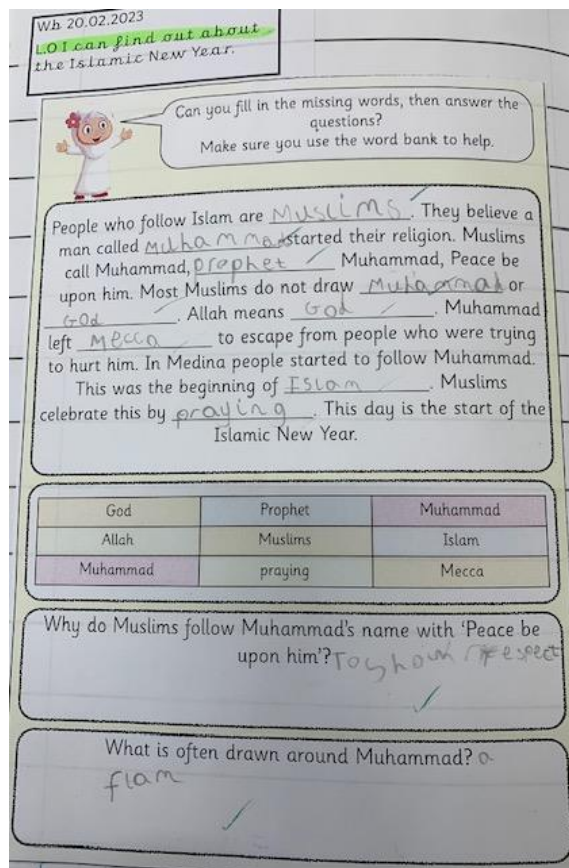 Wb 20.02.2023
L.O I can find out about
the Islamic New Year.
Can you fill in the missing words, then answer the
questions?
Make sure you use the word bank to help.
People who follow Islam are Muslims. They believe a
man called Muhammad started their religion. Muslims
call Muhammad, prophet Muhammad, Peace be
upon him. Most Muslims do not draw Muhammad or
God. Allah means God. Muhammad
left Mecca to escape from people who were trying
to hurt him. In Medina people started to follow Muhammad.
This was the beginning of Islam. Muslims
celebrate this by praying. This day is the start of the
Islamic New Year.
God Prophet Muhammad
Allah Muslims Islam
Muhammad praying Mecca
Why do Muslims follow Muhammad's name with 'Peace be
upon him'? To show respect
What is often drawn around Muhammad? a
flam